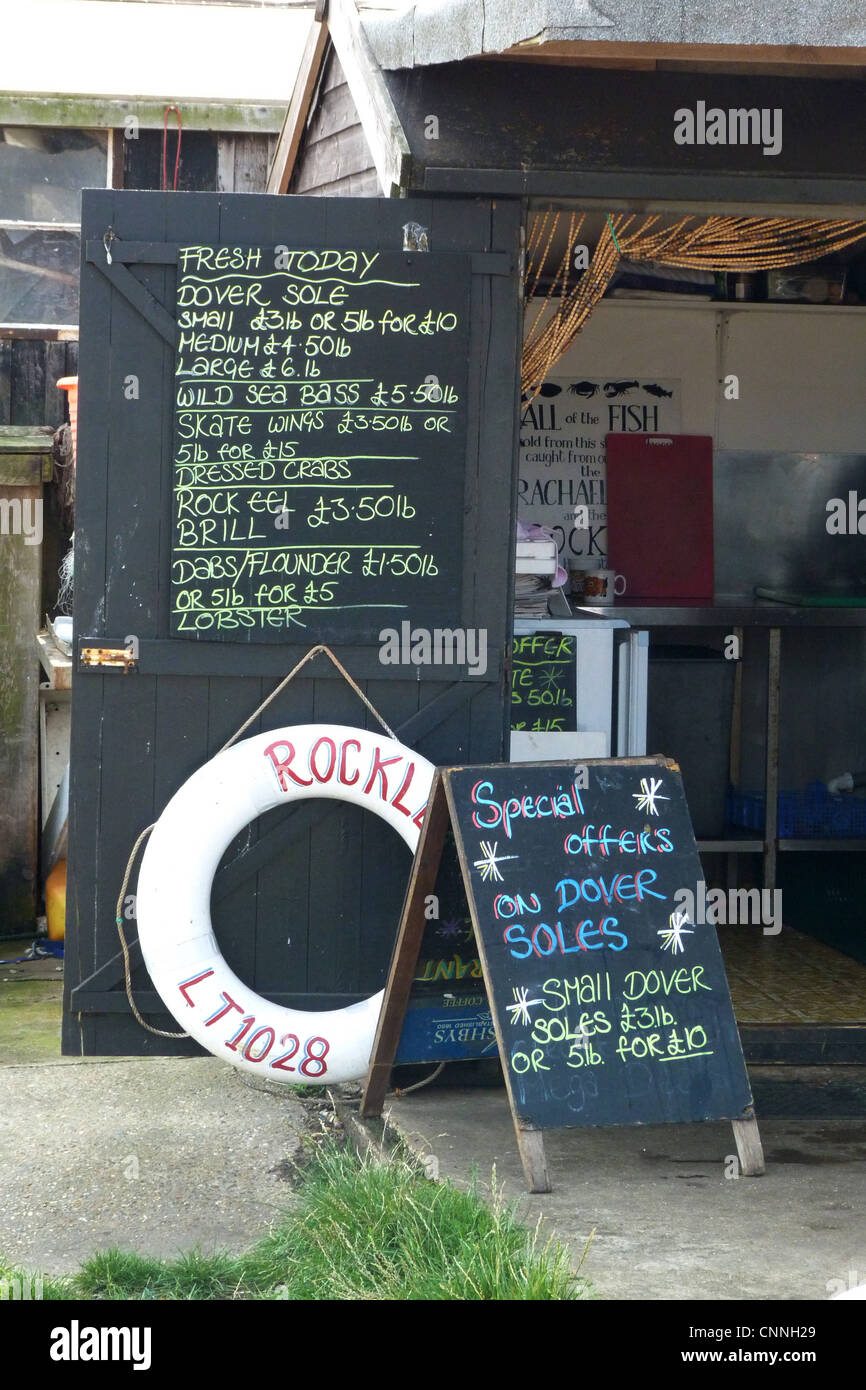 FRESH TODAY
DOVER SOLE
SMALL £3.lb OR 5lb FOR £10
MEDIUM £4.50lb
LARGE £6.lb
WILD SEA BASS £5.50lb
SKATE WINGS £3.50lb OR
5lb FOR £15
DRESSED CRABS
ROCK EEL £3.50lb
BRILL
DABS/FLOUNDER £1.50lb
OR 5lb FOR £5
LOBSTER
ALL of the FISH
sold from this
caught from
the
RACHAEL
and the
OFFER
50lb.
£15
ROCKL
LT1028
Special
offers
ON DOVER
SOLES
SMALL DOVER
SOLES £3.lb.
OR 5lb. FOR £10
COFFEE
ESTABLISHED
alamy
Image ID: CNNH29
www.alamy.com